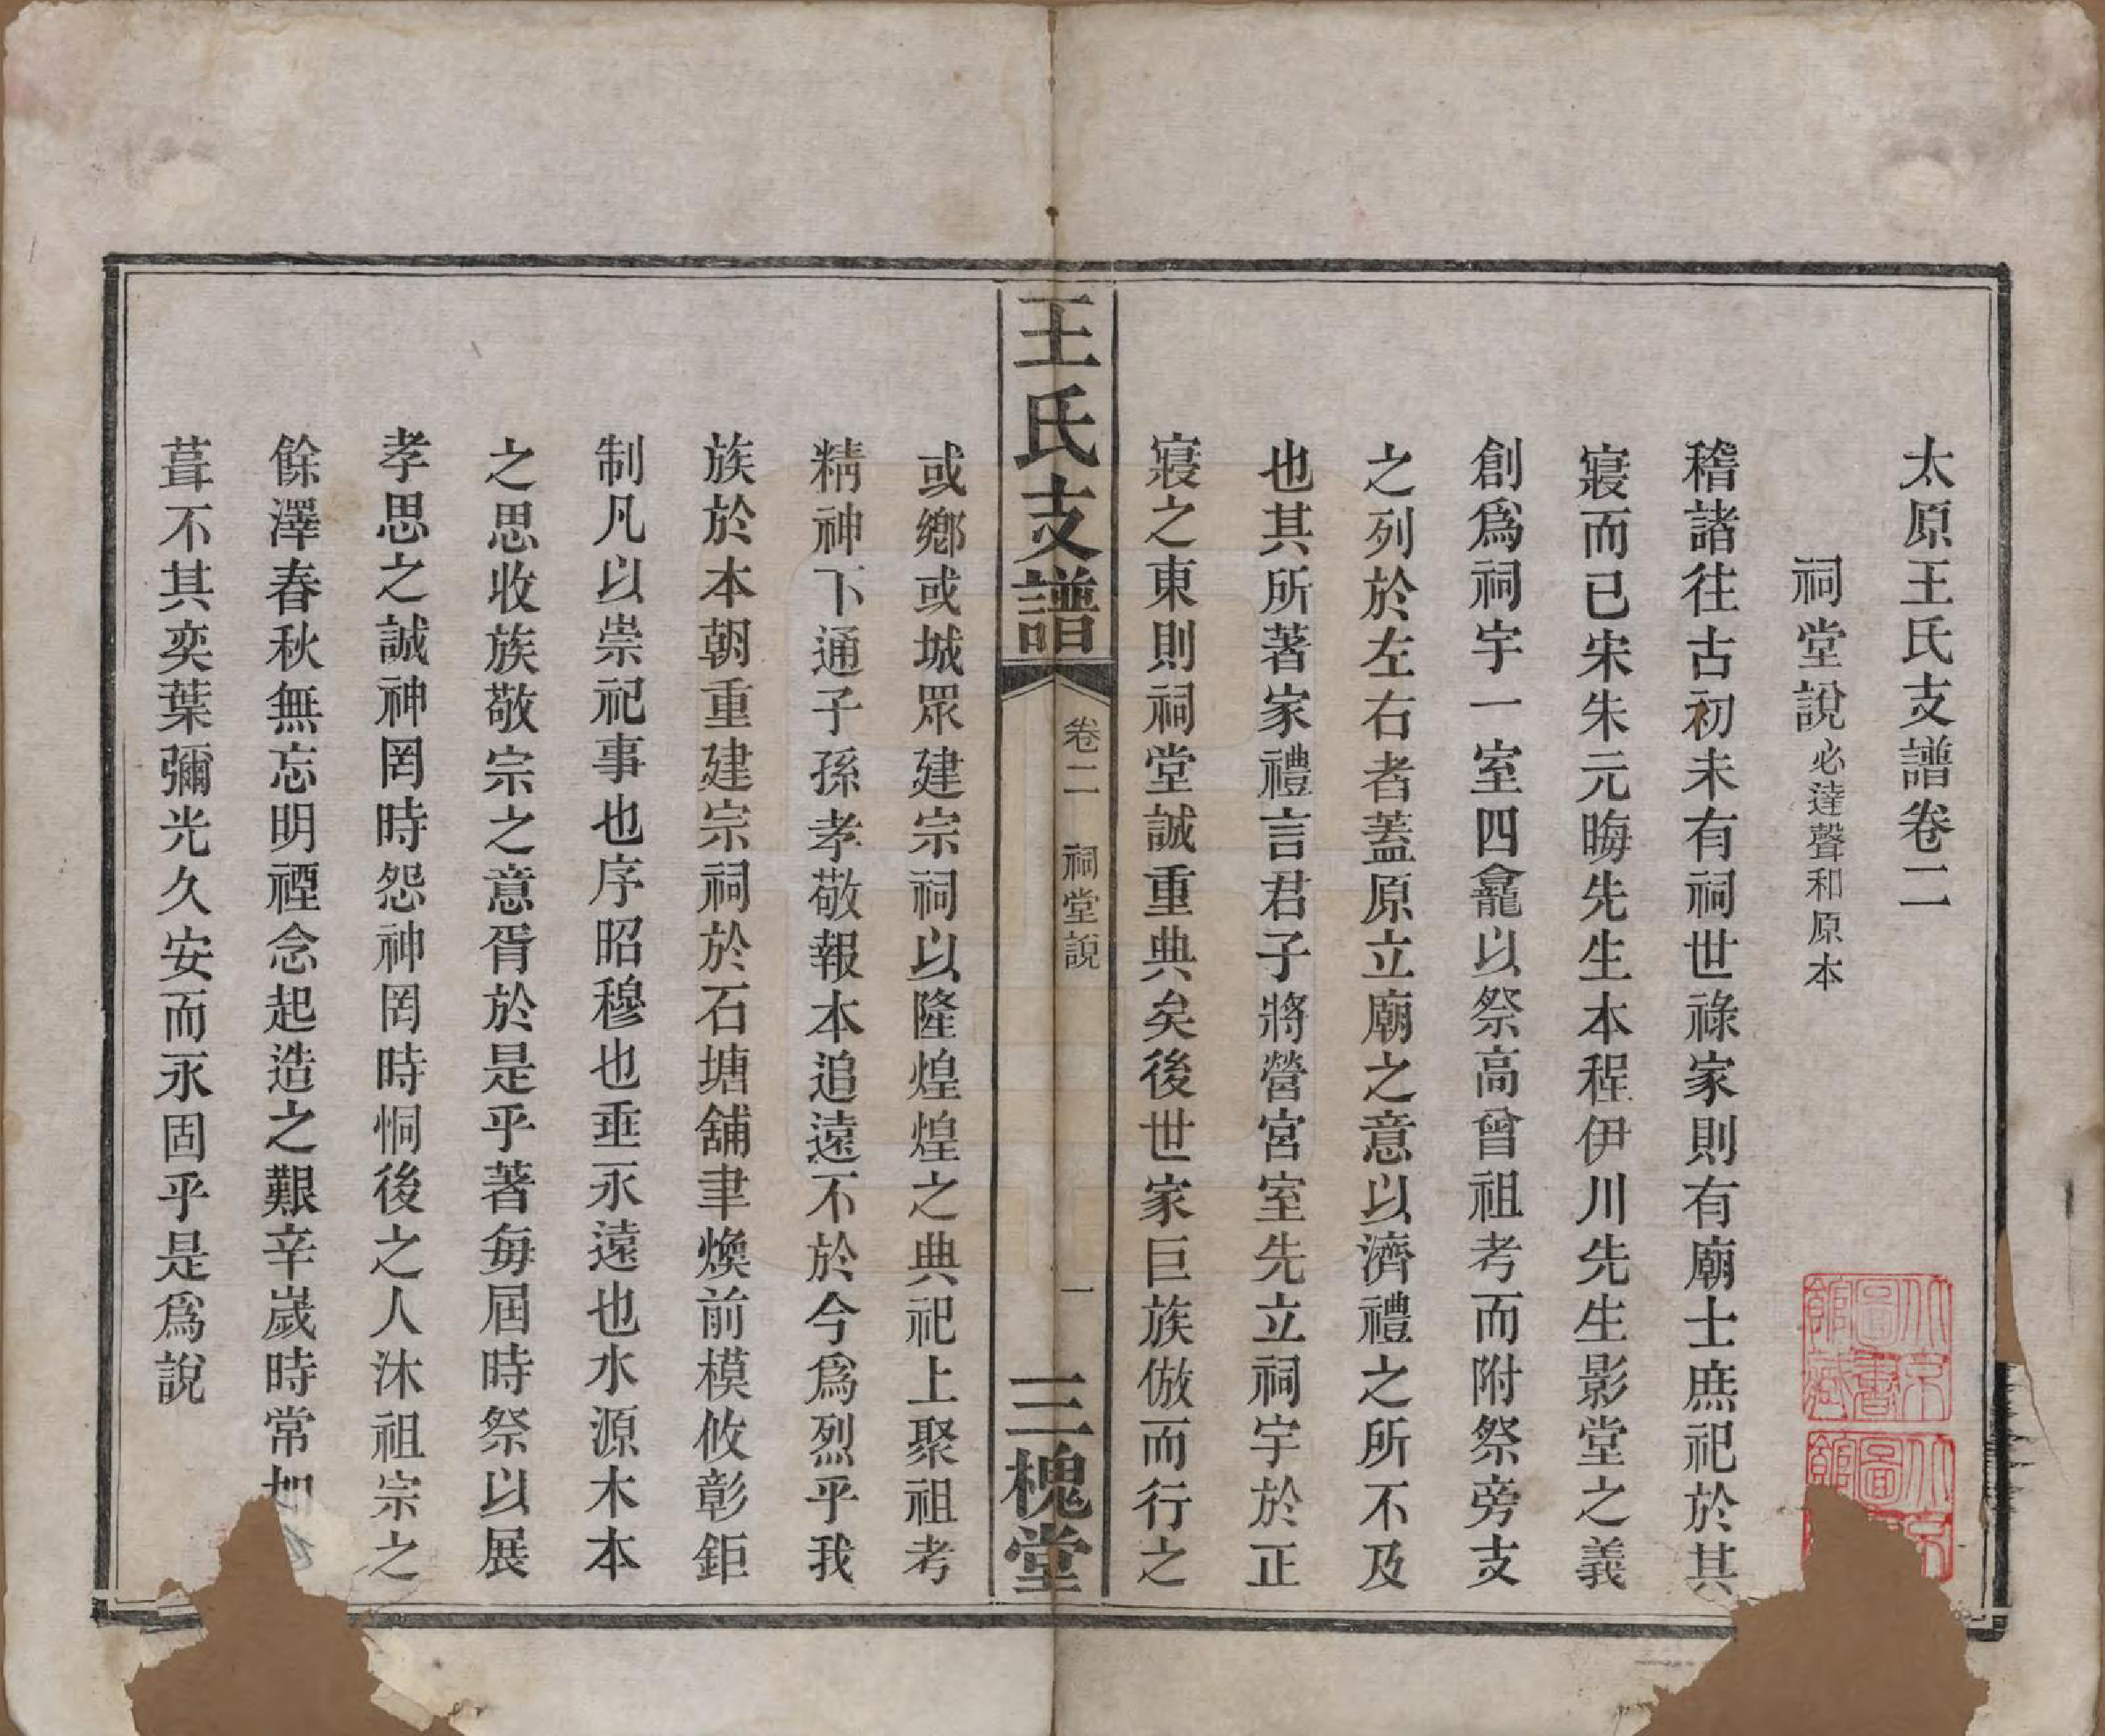 太原王氏支譜卷二
祠堂說必達聲和原本
稽諸往古初未有祠世祿家則有廟士庶祀於其
寢而已宋朱元晦先生本程伊川先生影堂之義
創爲祠宇一室四龕以祭高曾祖考而附祭旁支
之列於左右者蓋原立廟之意以濟禮之所不及
也其所著家禮言君子將營宮室先立祠宇於正
寢之東則祠堂誠重典矣後世家巨族倣而行之
王氏支譜
卷二 祠堂說
一
三槐堂
或鄉或城眾建宗祠以隆煌煌之典祀上聚祖考
精神下通子孫孝敬報本追遠不於今爲烈乎我
族於本朝重建宗祠於石塘舖聿煥前模攸彰鉅
制凡以崇祀事也序昭穆也垂永遠也水源木本
之思收族敬宗之意胥於是乎著每屆時祭以展
孝思之誠神罔時怨神罔時恫後之人沐祖宗之
餘澤春秋無忘明禋念起造之艱辛歲時常加
葺不其奕葉彌光久安而永固乎是爲說
北京圖書館藏